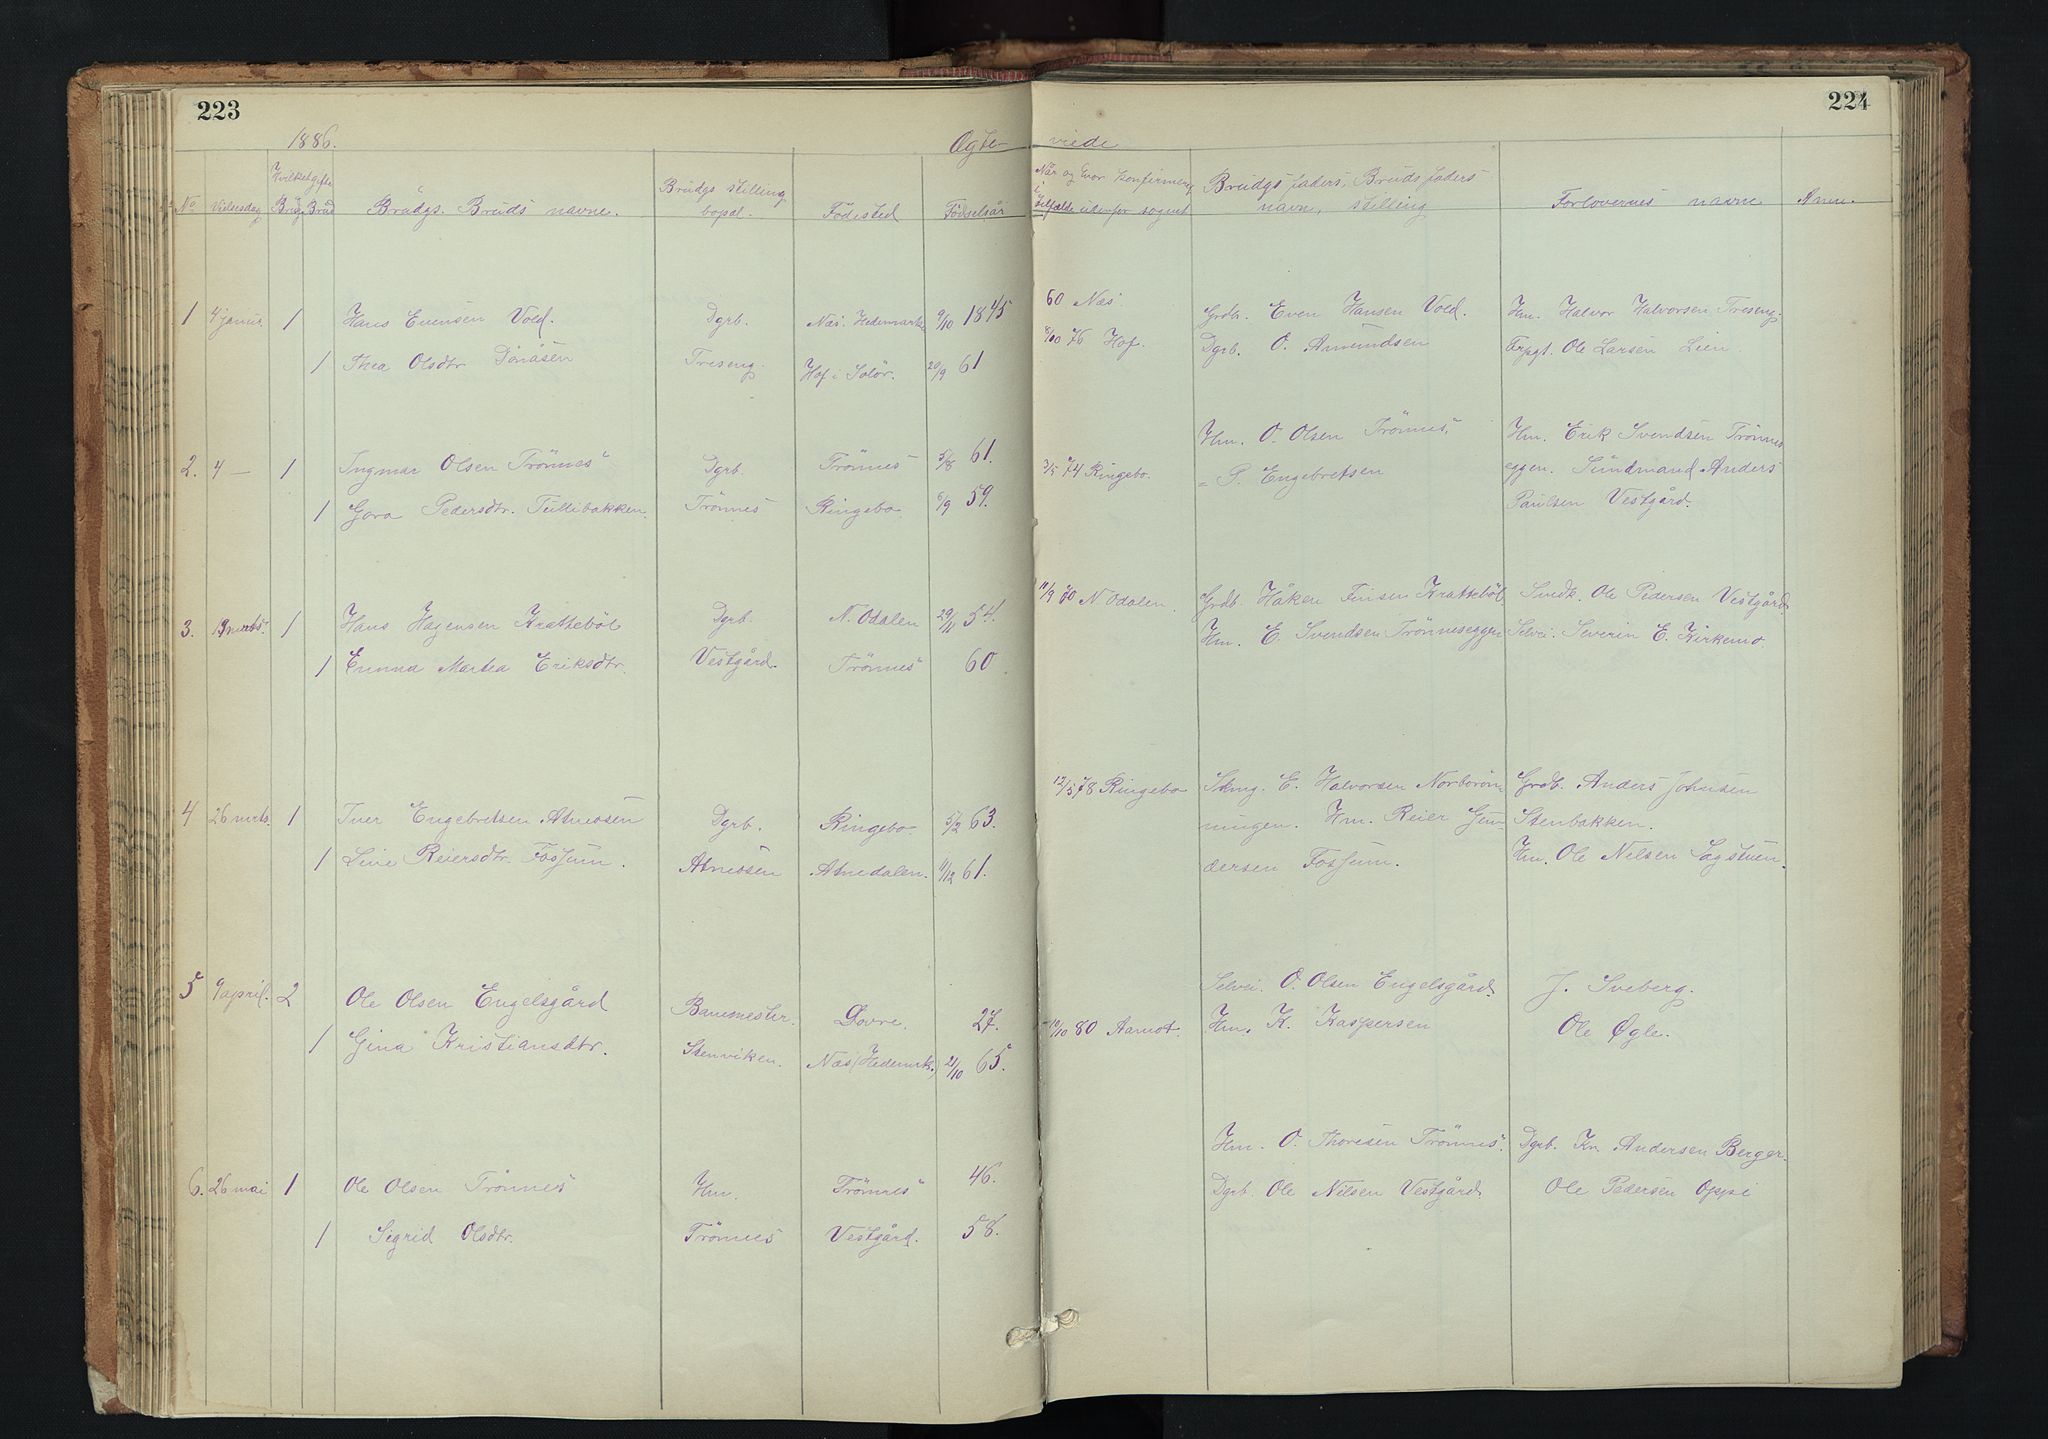 223
1886.
Ogte-
No Vielsesdag Hvilketgifte Brudg. Brud Brudgs. Bruds navne. Brudgs stilling bopæl. Födested Födselsår
1 4 januar. 1 Hans Evensen Vold. Dgrb. Næs. Hedemark. 9/10 1845
1 Thea Olsdtr Dönåsen Treseng. Hof i Solör. 20/9 61
2. 4 — 1 Ingmar Olsen Trönnes Dgrb. Trönnes 5/8 61.
1 Gora Pedersdtr. Tullibakken. Trönnes Ringebo 6/9 59.
3. mrts. 1 Hans Hagensen Krattebøl Dgrb. N. Odalen 29/11 54.
1 Emma Martea Eriksdtr. Vestgård. Trönnes 60
4 26 mrts. 1 Iver Engebretsen Atneosen Dgrb. Ringebo 5/2 63.
1 Line Reiersdtr. Fossum. Atneosen Atnedalen. 11/12 61.
5 9 april. 2 Ole Olsen Engelsgård Banemester. Dovre. 27.
1 Gina Kristiansdtr. Stenviken. Næs (Hedemrk.) 21/10 65.
6. 26 mai 1 Ole Olsen Trönnes Hm. Trönnes 46.
1 Sigrid Olsdtr. Trönnes Vestgård. 58.
224
viede
Når og hvor konfirmeret i tilfælde udenfor sognet Brudgs faders, Bruds faders navn, stilling Forlovernes navne Anm.
60 Næs. Grdb. Even Hansen Vold. Hm. Halvor Halvorsen Treseng.
76 Hof. Dgrb. O. Amundsen Frpgt. Ole Larsen Lien.
Hm. O. Olsen Trönnes. Hm. Erik Svendsen Trönnes
3/5 74 Ringebo. = P. Engebretsen eggen. Sundmand Anders
Paulsen Vestgård.
11/9 70 N. Odalen. Grdb. Håken Finsen Krattebøl Sundk. Ole Pedersen Vestgård
Hm. E. Svendsen Trönneseggen Selvei. Severin E. Kirkemo
12/5 78 Ringebo E. Halvorsen Norbrön- Grdb. Anders Johnsen
ningen. Hm. Reier Gun- Stenbakken.
dersen Fossum. Hm. Ole Nilsen Lagstuen.
Selvei. O. Olsen Engelsgård. J. Sveberg.
10/10 80 Aamot. Hm. K. Kaspersen Ole Øgle.
Hm. O. Thoresen Trönnes. Dgrb. Kr. Andersen Berger.
Dgrb. Ole Nilsen Vestgård. Ole Pedersen Oppi